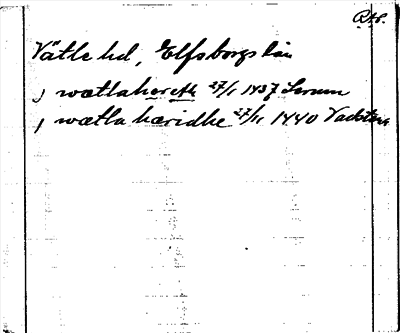 RAP.
Vätle hd, Elfsborgs län
j wætlahæreth 27/1 1437 Lerum
j wætla hæridhe 27/11 1440 Vadstena